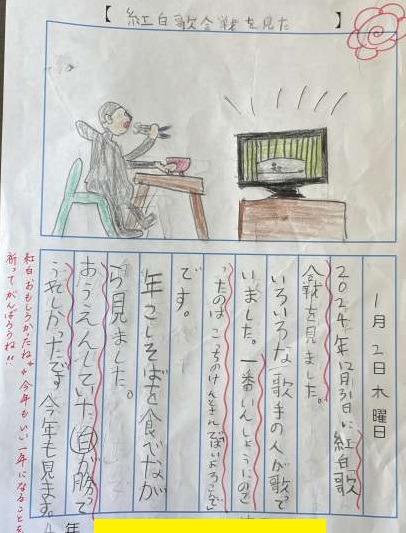 【紅白歌合戦を見た】
1月2日木曜日
2024年12月31日に紅白歌
合戦を見ました。
いろいろな歌手の人が歌って
いました。一番いんしょうにのこ
ったのはこっちのけんとさんではいよろこんで
です。
年こしそばを食べなが
ら見ました。
おうえんしていた白が勝って
うれしかったです。今年も見ます。
紅白おもしろかったね。今年もいい一年になることを
祈ってがんばろうね!!
年